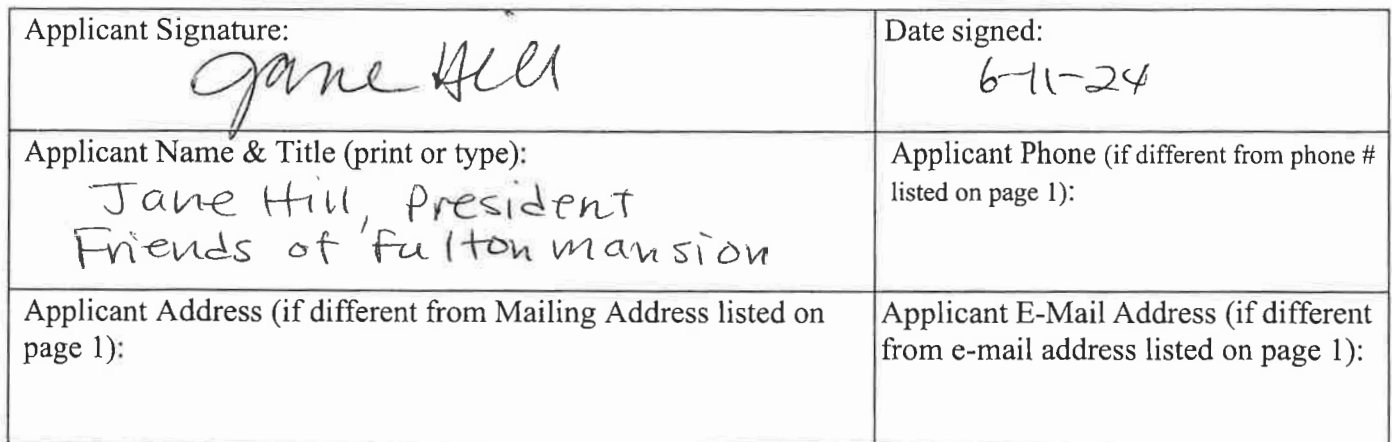 Applicant Signature:
Jane Hill
Date signed:
6-11-24
Applicant Name & Title (print or type):
Jane Hill, President
Friends of Fulton mansion
Applicant Phone (if different from phone #
listed on page 1):
Applicant Address (if different from Mailing Address listed on
page 1):
Applicant E-Mail Address (if different
from e-mail address listed on page 1):